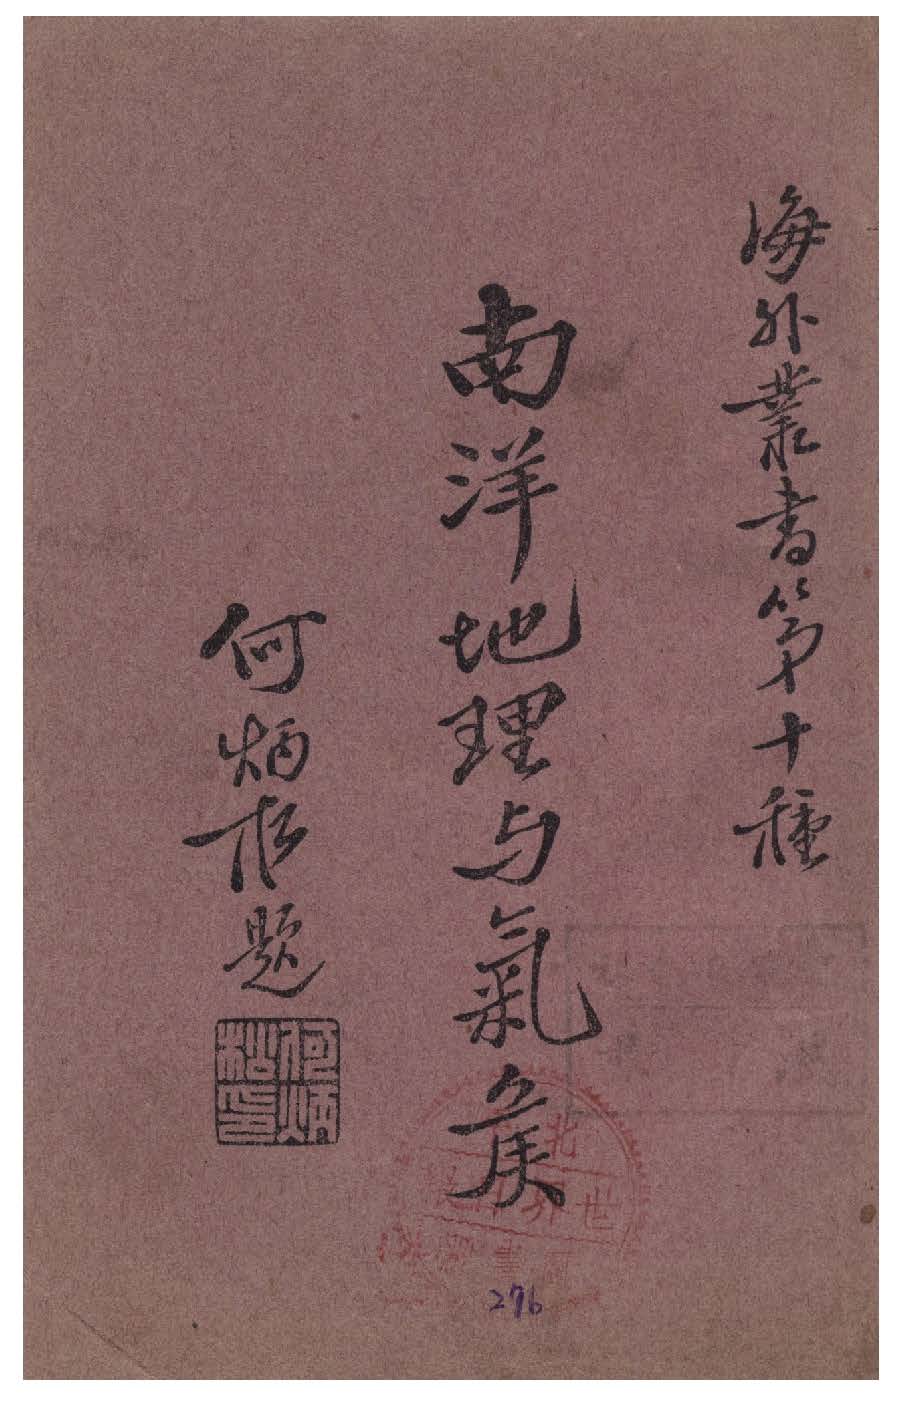 海外叢書第十種
南洋地理与氣候
何炳松題
何炳松印
北
世界
書
276